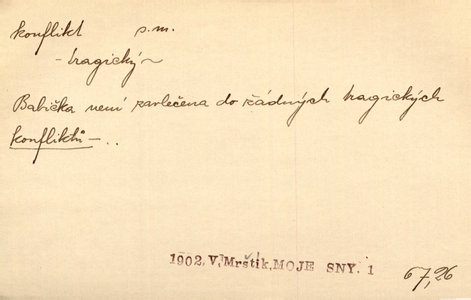 konflikt s. m.
- tragický ~
Babička není zavlečena do žádných tragických
konfliktů - ..
1902, V. Mrštík, MOJE SNY. 1
67,26